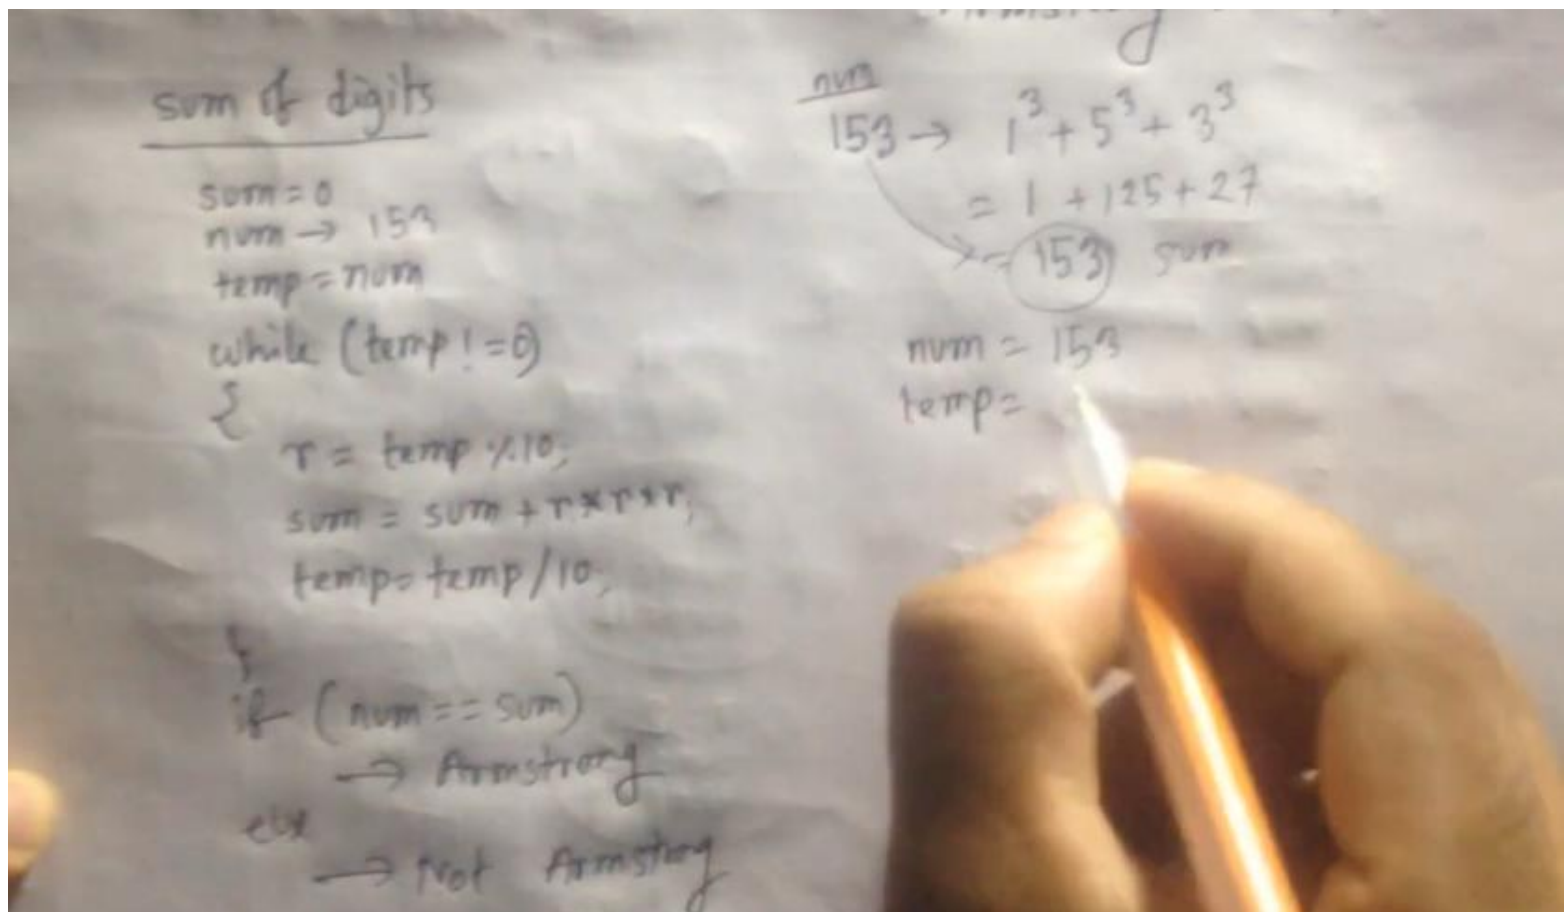 sum of digits
sum = 0
num → 153
temp = num
while (temp != 0)
{
r = temp % 10;
sum = sum + r*r*r;
temp = temp / 10;
}
if (num == sum)
→ Armstrong
else
→ Not Armstrong
num
153 → 1³ + 5³ + 3³
= 1 + 125 + 27
= 153 sum
num = 153
temp =